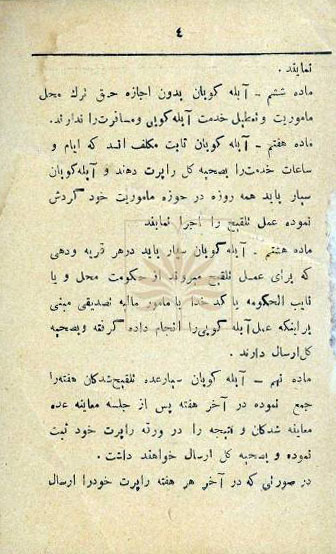 ٤
نمایند.
ماده ششم ـ آبله کوبان بدون اجازه حق ترك محل
ماموریت و تعطیل خدمت آبله‌کوبی و مسافرت را ندارند.
ماده هفتم ـ آبله کوبان ثابت مکلف اند که ایام و
ساعات خدمت را بصحیه کل راپرت دهند و آبله‌کوبان
سیار باید همه روزه در حوزه ماموریت خود گردش
نموده عمل تلقیح را اجرا نمایند
ماده هشتم ـ آبله کوبان سیار باید در هر قریه و دهی
که برای عمل تلقیح میروند از حکومت محل و یا
نایب الحکومه یا کد خدا یا مامور مالیه تصدیقی مبنی
بر اینکه عمل آبله کوبی را انجام داده گرفته و بصحیه
کل ارسال دارند.
ماده نهم ـ آبله کوبان سیار عده تلقیح‌شدکان هفته را
جمع نموده در آخر هفته پس از جلسه معاینه عده
معاینه شدکان و نتیجه را در ورقه راپرت خود ثبت
نموده و بصحیه کل ارسال خواهند داشت.
در صورتی که در آخر هر هفته راپرت خود را ارسال